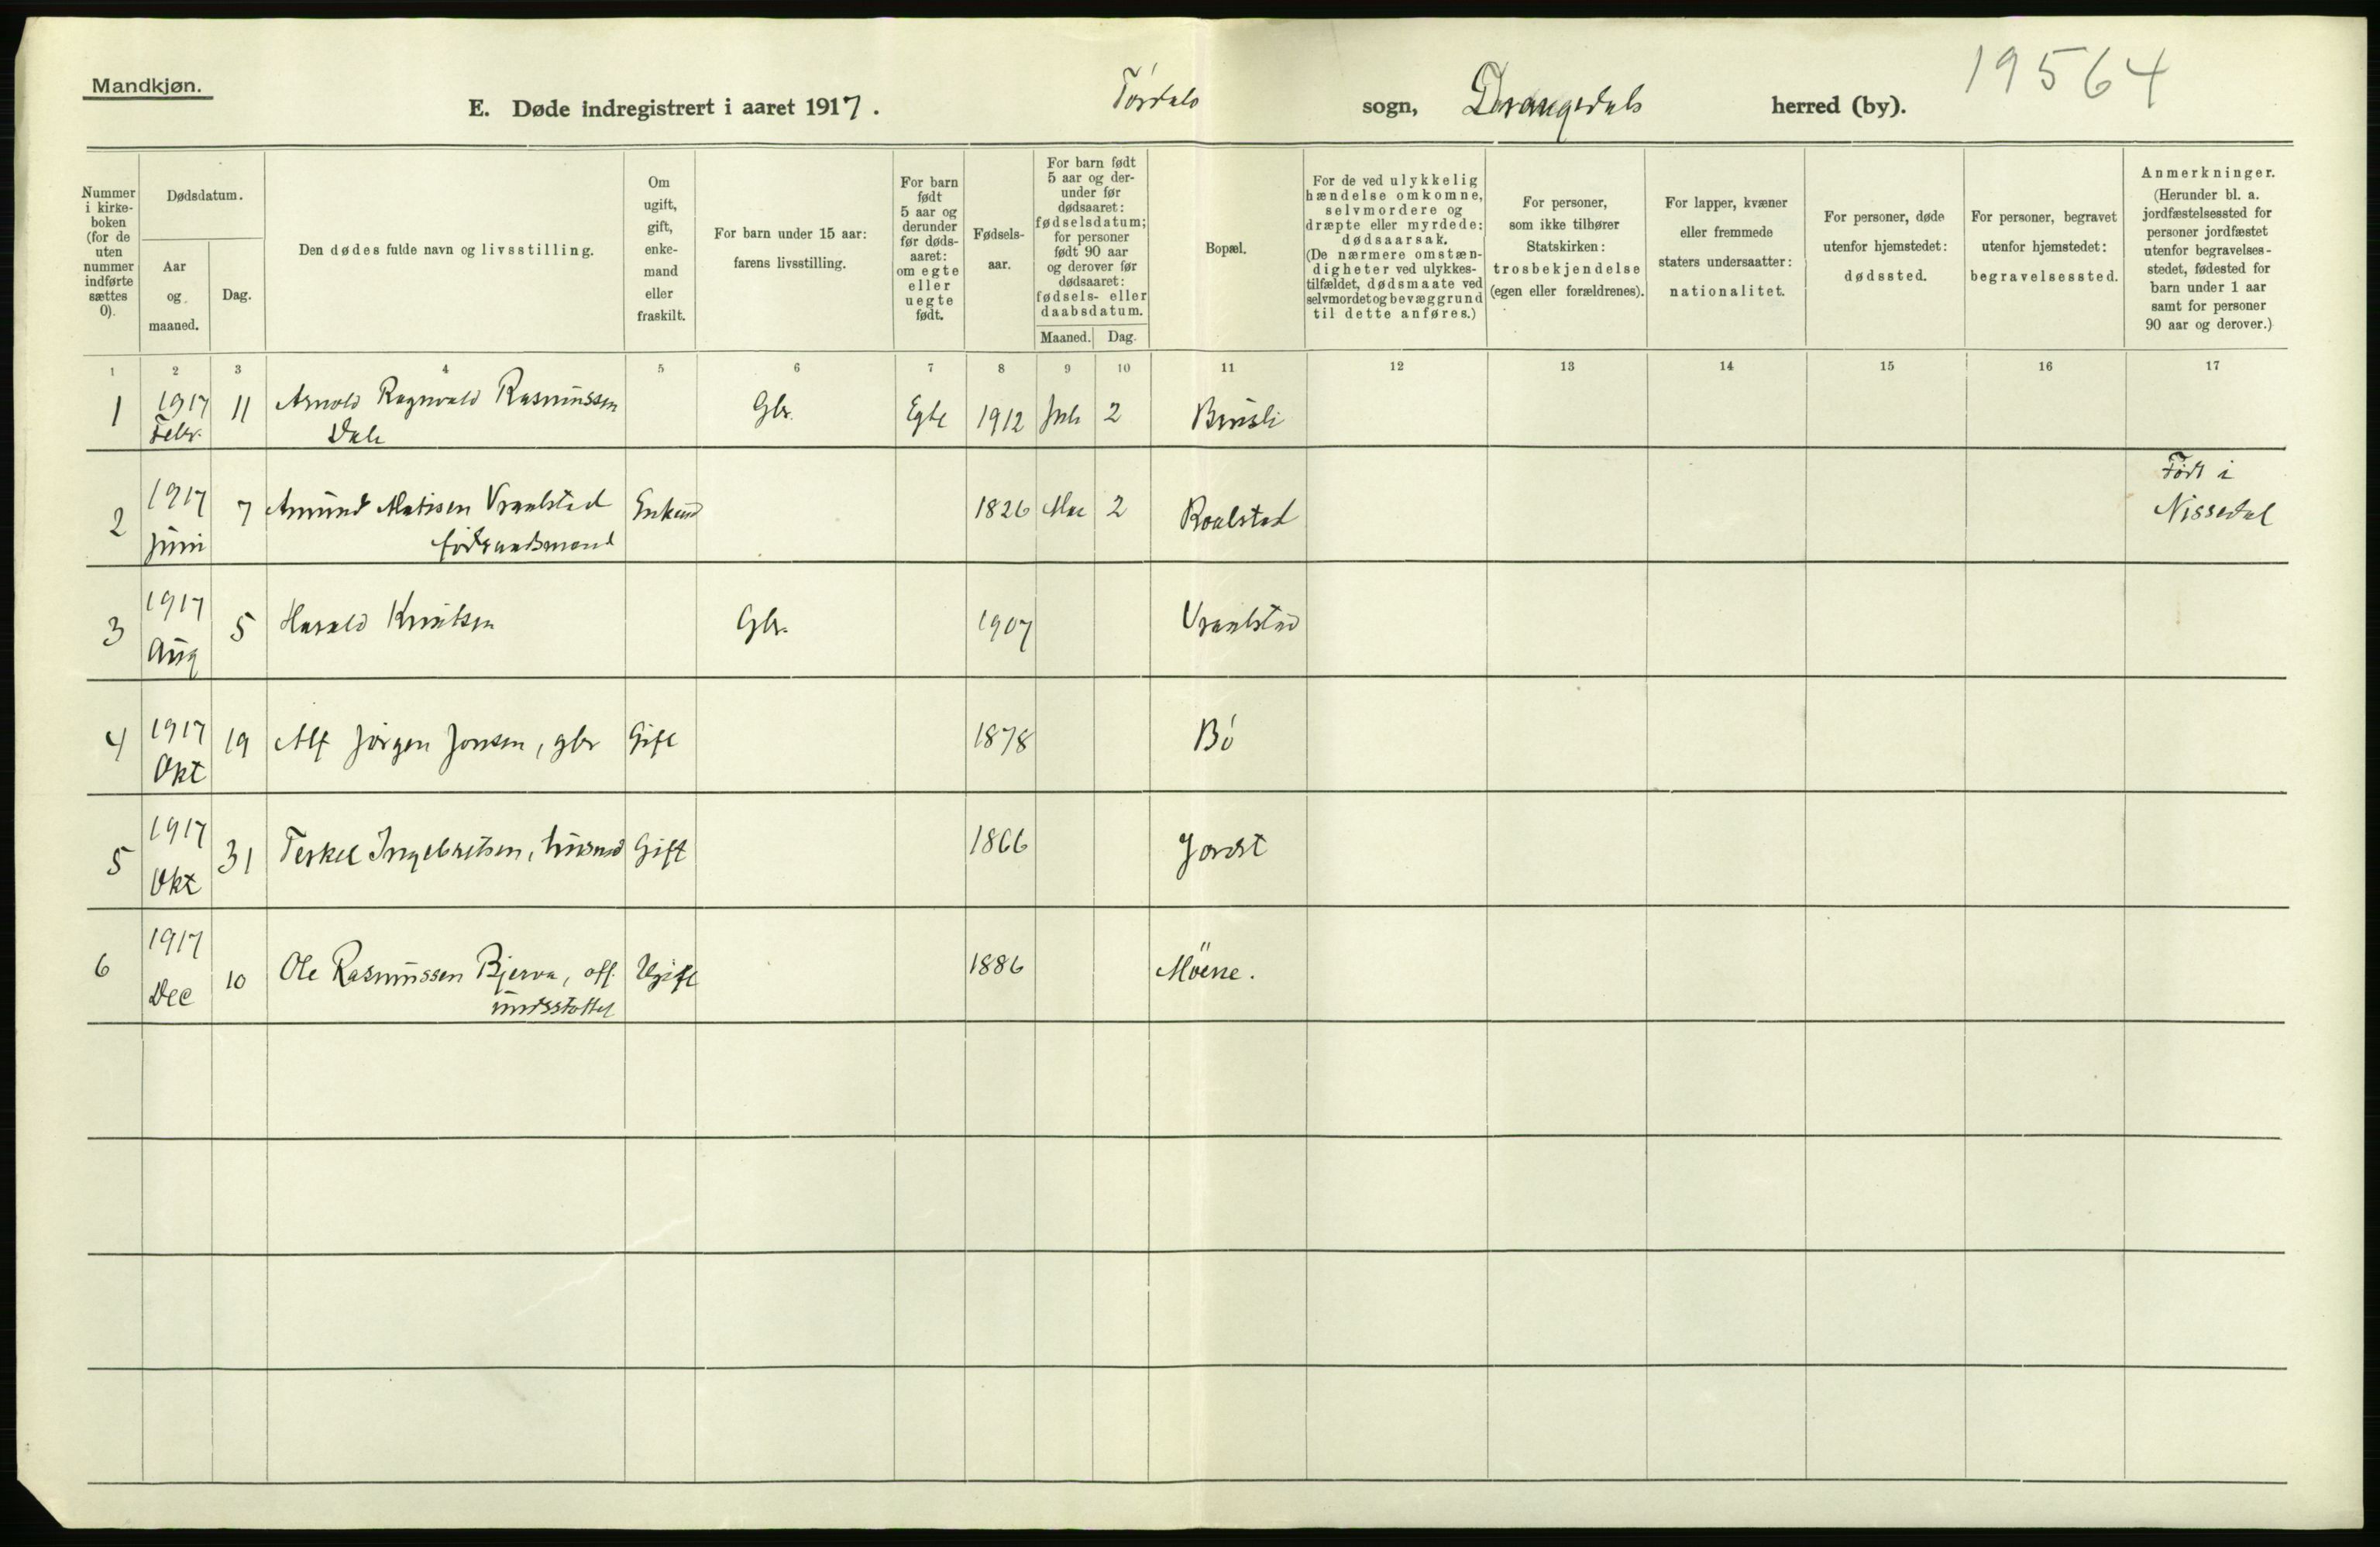 Mandkjøn.
E. Døde indregistrert i aaret 1917. Tørdals sogn, Drangedals herred (by).
19564
Nummer i kirke-boken (for de uten nummer indførte sættes 0).
Dødsdatum.
Aar og maaned.
Dag.
Den dødes fulde navn og livsstilling.
Om ugift, gift, enke-mand eller fraskilt.
For barn under 15 aar: farens livsstilling.
For barn født 5 aar og derunder før døds-aaret: om egte eller uegte født.
Fødsels-aar.
For barn født 5 aar og der-under før dødsaaret: fødselsdatum; for personer født 90 aar og derover før dødsaaret: fødsels- eller daabsdatum.
Maaned.
Dag.
Bopæl.
For de ved ulykkelig hændelse omkomne, selvmordere og dræpte eller myrdede: dødsaarsak. (De nærmere omstæn-digheter ved ulykkes-tilfældet, dødsmaate ved selvmordet og bevæggrund til dette anføres.)
For personer, som ikke tilhører Statskirken: trosbekjendelse (egen eller forældrenes).
For lapper, kvæner eller fremmede staters undersaatter: nationalitet.
For personer, døde utenfor hjemstedet: dødssted.
For personer, begravet utenfor hjemstedet: begravelsessted.
Anmerkninger. (Herunder bl. a. jordfæstelsessted for personer jordfæstet utenfor begravelses-stedet, fødested for barn under 1 aar samt for personer 90 aar og derover.)
1 2 3 4 5 6 7 8 9 10 11 12 13 14 15 16 17
1 1917 Febr. 11 Arnold Ragnvald Rasmussen Dale Gbr. Egte 1912 Juli 2
2 1917 Juni 7 Amund Matisen Vraalstad Enkem 1826 Mai 2 Født i Nissedal
3 1917 Aug 5 Harald Knutsen Gbr. 1907 Vraalstad
4 1917 Okt 19 Alf Jørgen Jonsen, gbr Gift 1878 Bø
5 1917 Okt 31 Terkel Ingebretsen, husmd Gift 1866
6 1917 Dec 10 Ole Rasmussen Bjerva, off. understøttet Ugift 1886 Moene.